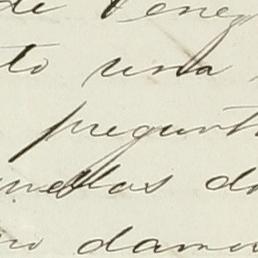 de Veneg
to una
pregunt
mellos d
no damos